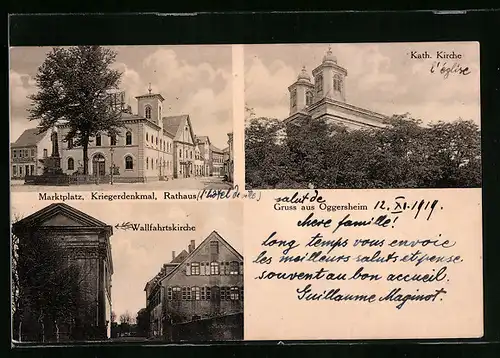 Kath. Kirche
l'église
Marktplatz, Kriegerdenkmal, Rathaus (l'hôtel de ville)
Wallfahrtskirche
salut de
Gruss aus Oggersheim 12. XI. 1919.
chere famille!
long temps vous envoie
les meilleurs saluts et pense
souvent au bon accueil.
Guillaume Maginot.